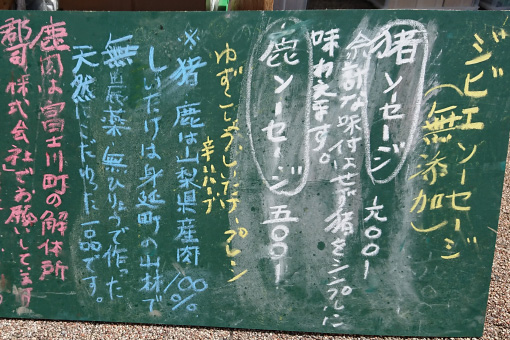 ジビエソーセージ
(無添加)
猪ソーセージ 六〇〇ー
余計な味付はせず猪をシンプルに
味わえます。
鹿ソーセージ 五〇〇ー
ゆずこしょう、しいたけ、プレーン
辛い
※猪 鹿は山梨県産肉100%
しいたけは身延町の山林で
無農薬 無ひりょうで作った
天然にこだわった一品です。
鹿肉は富士川町の解体所
「株式会社」でお願いしてます